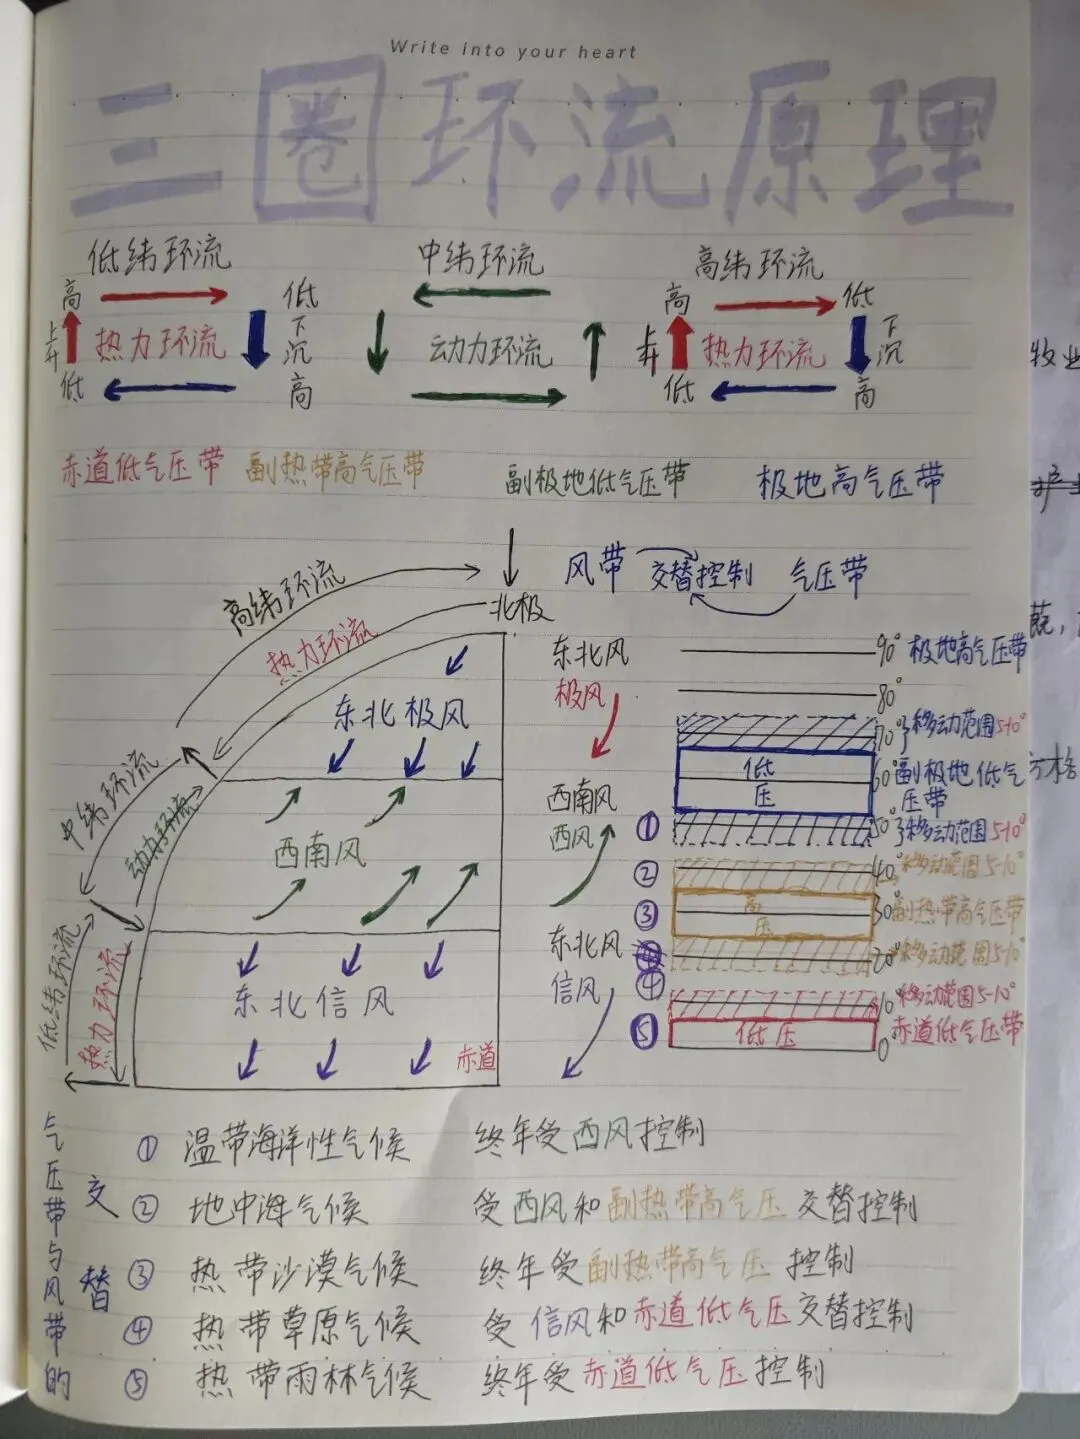 Write into your heart
三圈环流原理
低纬环流 中纬环流 高纬环流
高 低 高 低
上升 热力环流 下沉 动力环流 上升 热力环流 下沉
低 高 低 高
赤道低气压带 副热带高气压带 副极地低气压带 极地高气压带
风带 交替控制 气压带
高纬环流
热力环流
北极
东北极风
中纬环流
动力环流
西南风
低纬环流
热力环流
东北信风
赤道
东北风
极风
西南风
西风
东北风
信风
90° 极地高气压带
80°
70° 移动范围5-10°
低压 60° 副极地低气压带
① 50° 移动范围5-10°
② 40° 移动范围5-10°
③ 高压 30° 副热带高气压带
④ 20° 移动范围5-10°
10° 移动范围5-10°
⑤ 低压 赤道低气压带
0
气压带与风带的
交替
① 温带海洋性气候 终年受西风控制
② 地中海气候 受西风和副热带高气压交替控制
③ 热带沙漠气候 终年受副热带高气压控制
④ 热带草原气候 受信风和赤道低气压交替控制
⑤ 热带雨林气候 终年受赤道低气压控制
牧业
方格